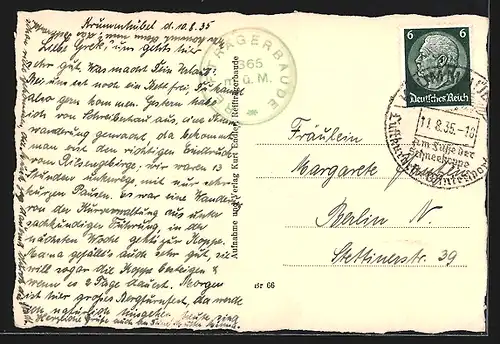 Krummhübel d. 10.8.35
Liebe Grete, uns geht's hier
sehr gut. Was macht Dein Urlaub?
Bei uns ist noch ein Bett frei, Du kannst
also gern kommen. Gestern habe
ich von Schreiberhau aus, eine
wanderung gemacht, da bekommt
man erst den richtigen Eindruck
vom Riesengebirge; wir waren 13
Stunden unterwegs, mit nur sehr
kurzen Pausen. Es war eine Wanderung
von der Kurverwaltung aus unter
sachkundiger Führung, in der
nächsten Woche geht's zur Koppe.
Mama gefällt's auch sehr gut, sie
will sogar die Koppe besteigen &
wenn es 2 Tage dauert. Morgen
ist hier großes Bergturnfest, da
wir natürlich
Herzliche Grüße auch
REIFTRÄGERBAUDE
1365
m ü. M.
Aufnahme und Verlag Kurt Endler, Reifträgerbaude
Br 66
6 6
Deutsches Reich
11.8.35.-18
Am Fuße der
Schneekoppe
Fräulein
Margarete
Berlin N.
Stettinerstr. 39